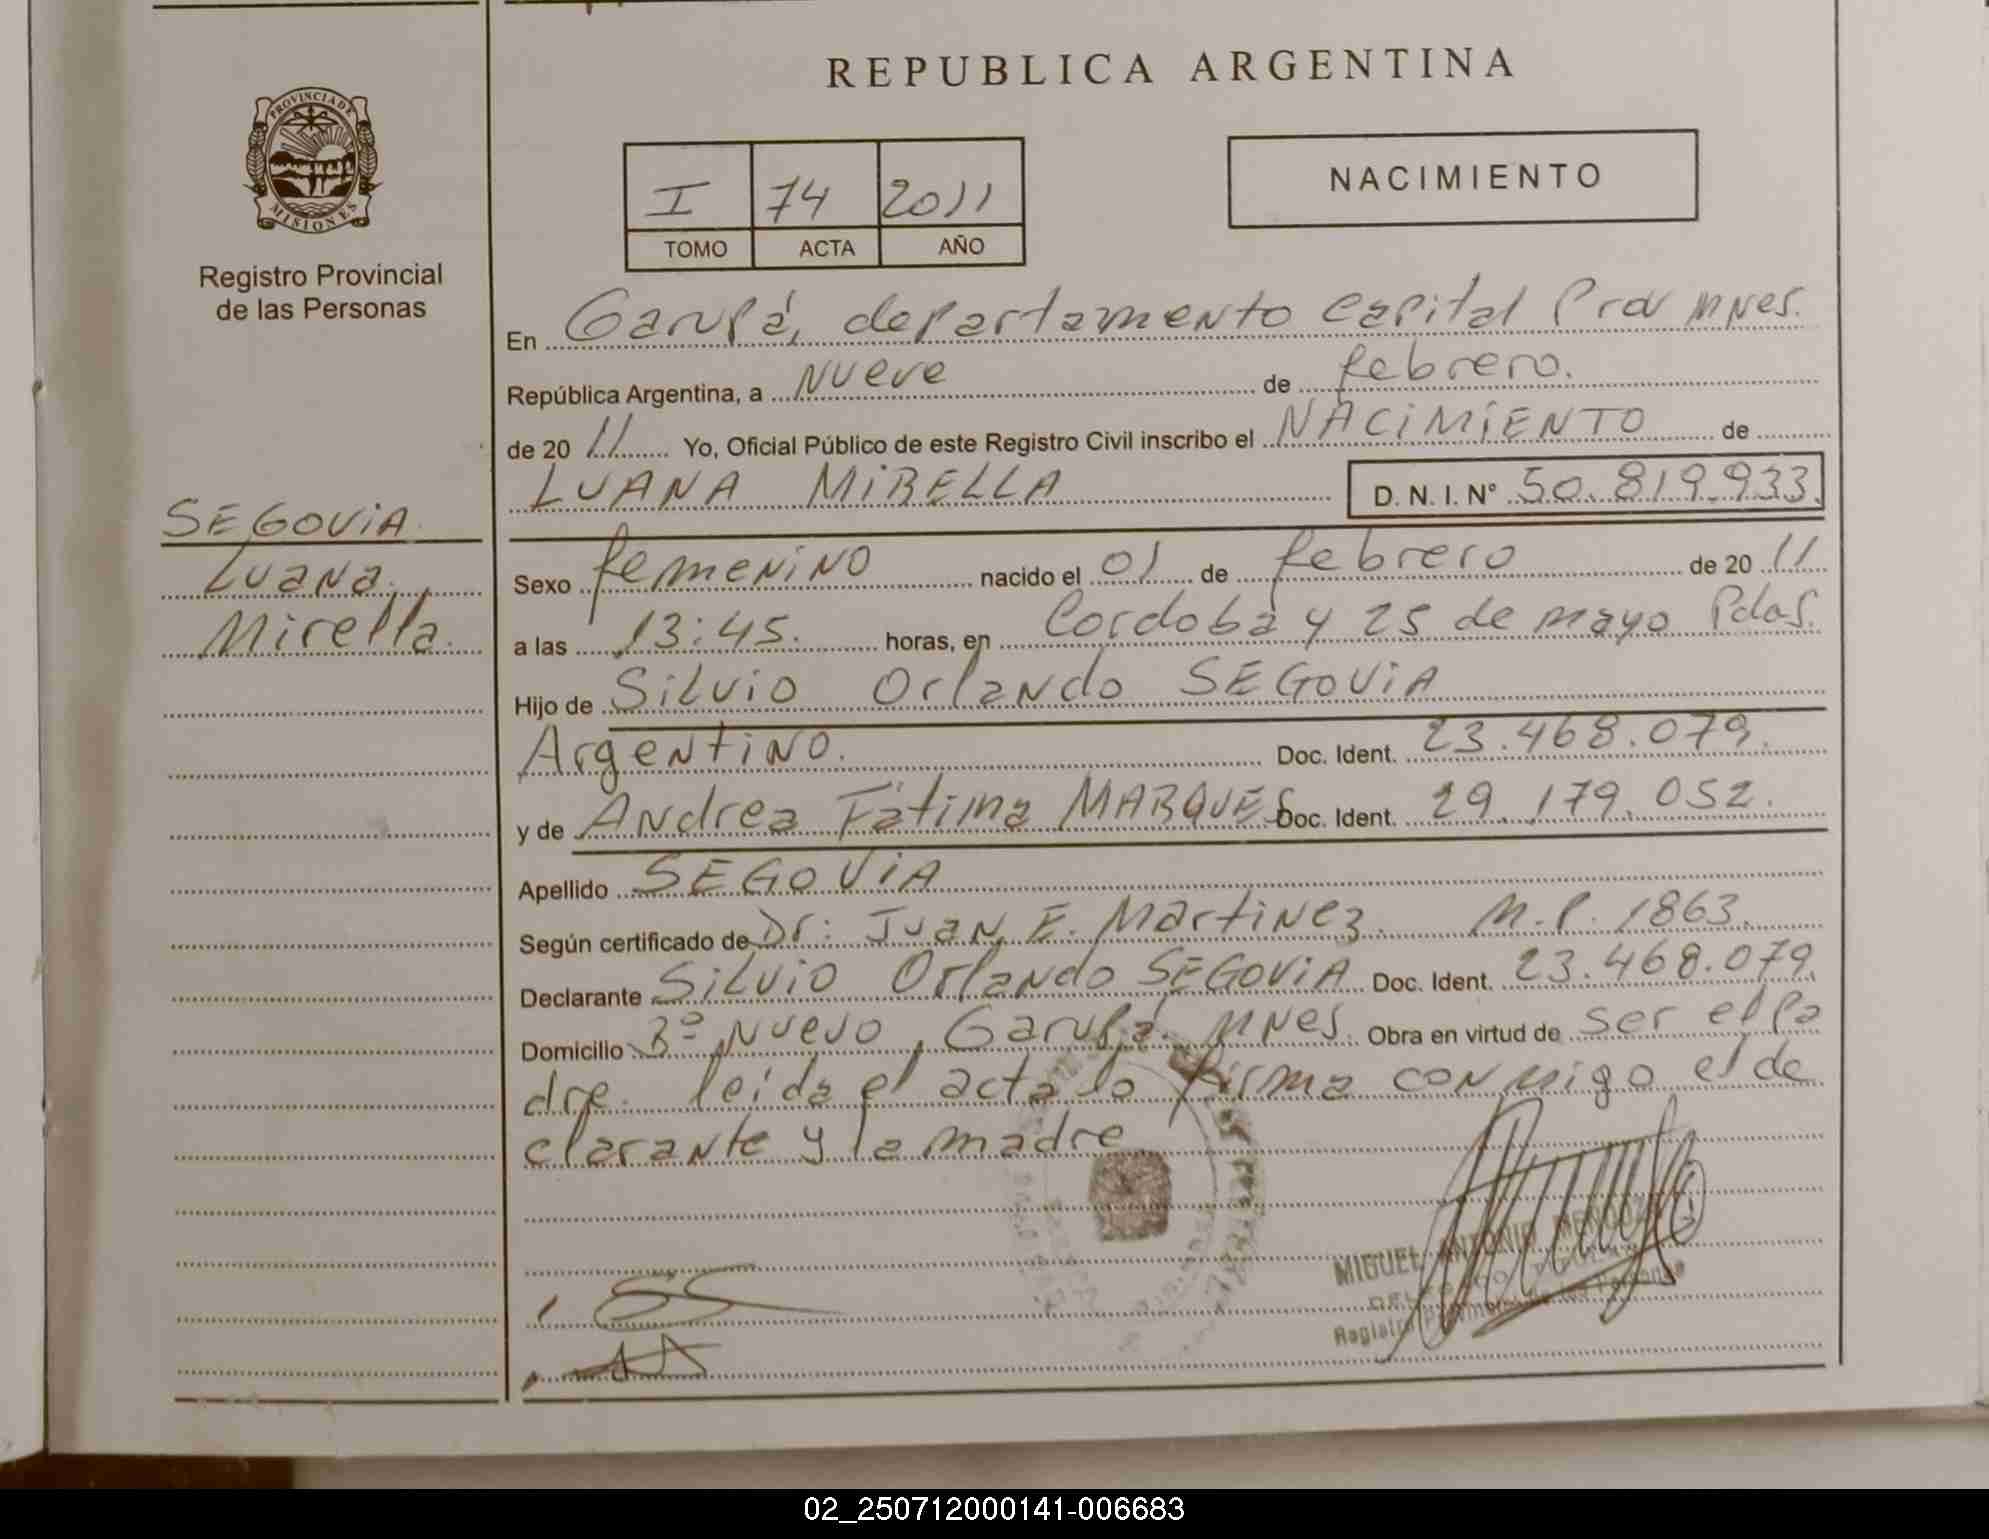 REPUBLICA ARGENTINA
PROVINCIA DE
MISIONES
Registro Provincial
de las Personas
I 74 2011
TOMO ACTA AÑO
NACIMIENTO
En Garupá, departamento Capital Prov Mnes.
República Argentina, a Nueve de febrero.
de 20 11 Yo, Oficial Público de este Registro Civil inscribo el NACIMIENTO de
LUANA MIRELLA D. N. I. N° 50.819.933
SEGOVIA
Luana
Mirella.
Sexo femenino nacido el 01 de febrero de 20 11
a las 13:45. horas, en Cordoba y 25 de mayo Pdas.
Hijo de Silvio Orlando SEGOVIA
Argentino. Doc. Ident. 23.468.079.
y de Andrea Fátima MARQUES Doc. Ident. 29.179.052.
Apellido SEGOVIA
Según certificado de Dr: Juan E. Martinez. M.P. 1863.
Declarante Silvio Orlando SEGOVIA Doc. Ident. 23.468.079
Domicilio B° Nuevo, Garupá. Mnes. Obra en virtud de ser el pa
dre. leída el acta la firma conmigo el de
clarante y la madre
MIGUEL ANTONIO MENDOZA
Registro Provincial de las Personas
02_250712000141-006683